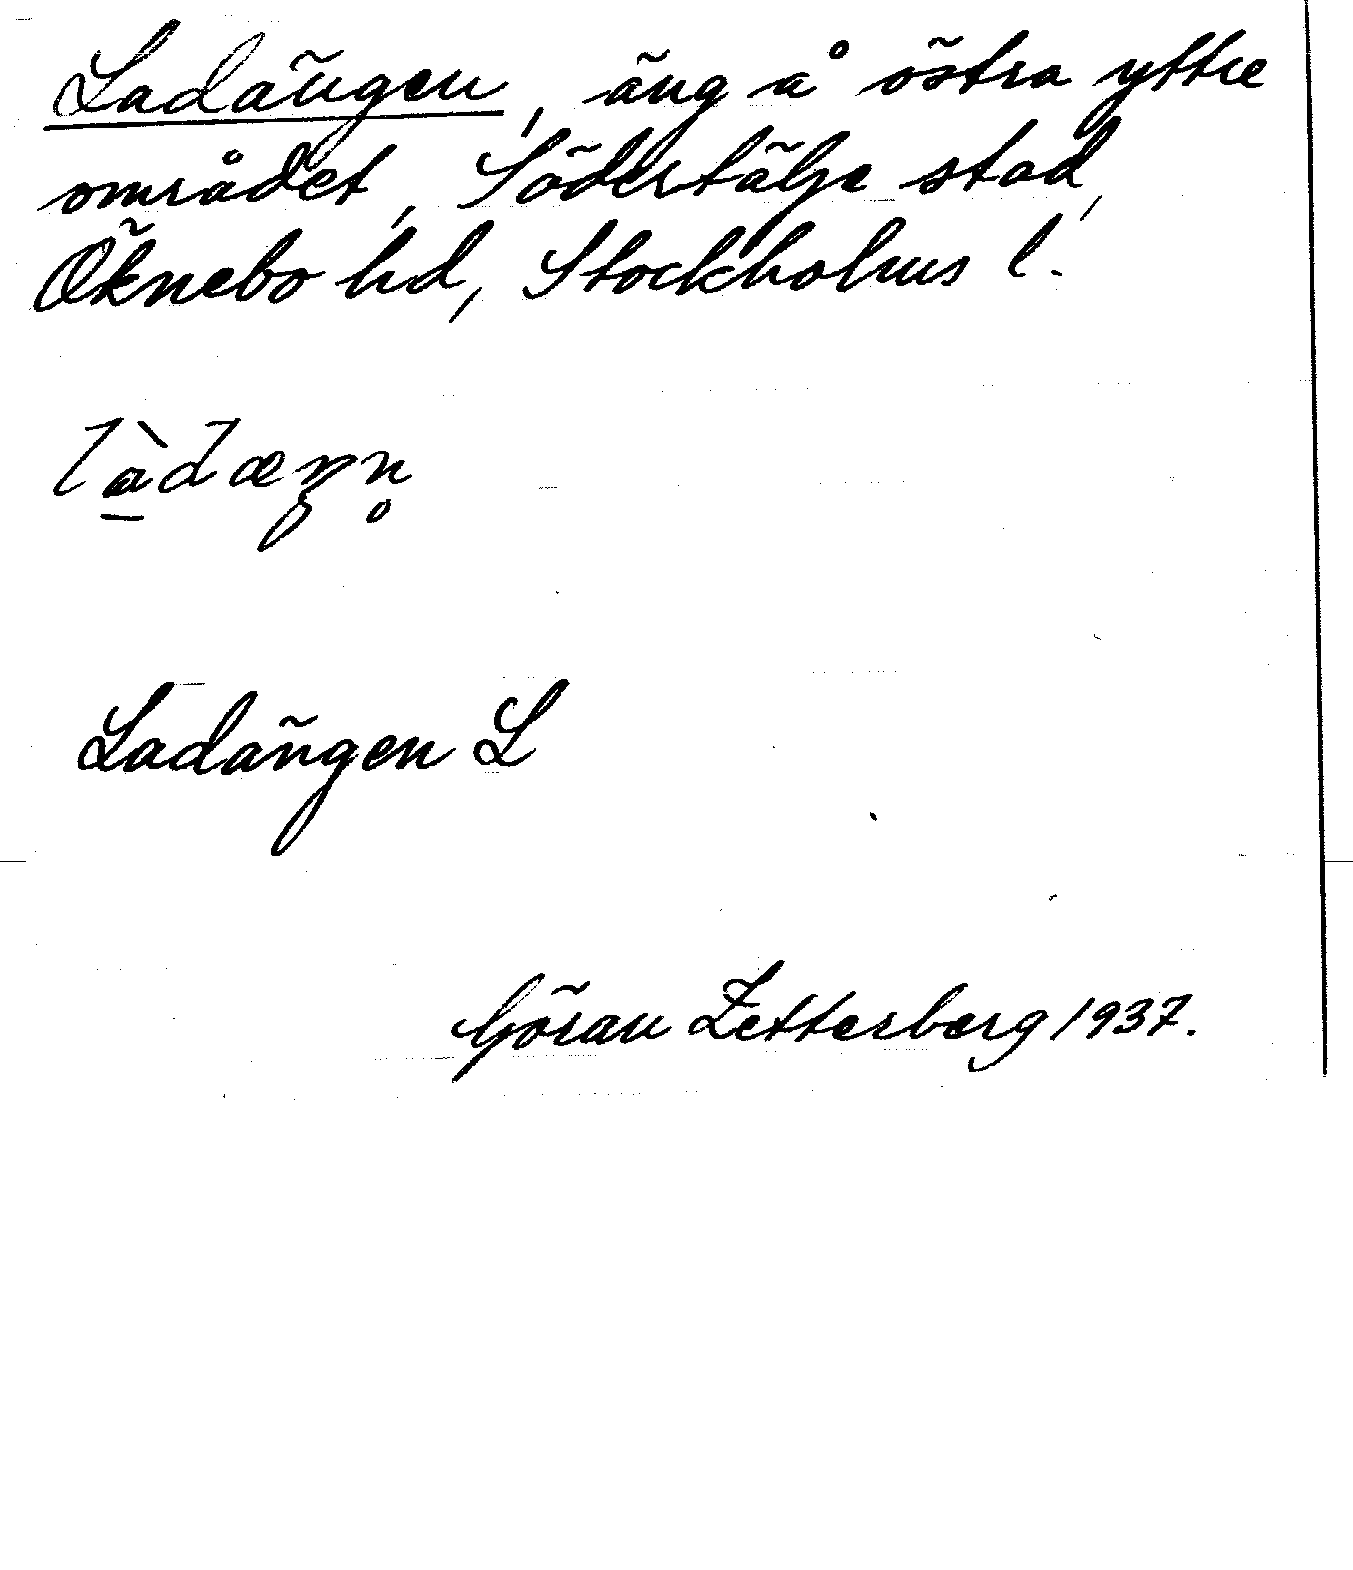 Ladängen, äng å östra yttre
området, Södertälje stad,
Öknebo hd, Stockholms l.
là̱dæŋn̥
Ladängen L
Göran Zetterberg 1937.